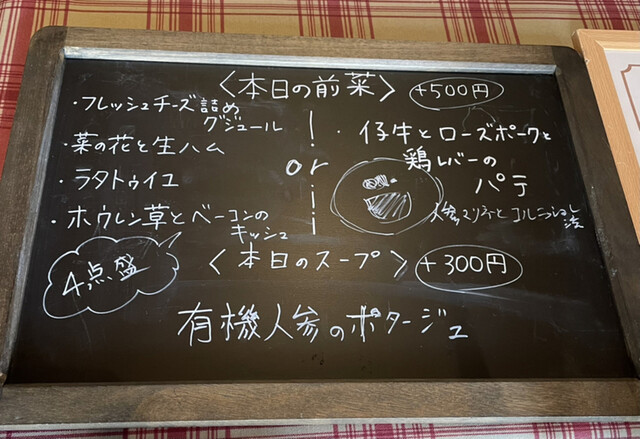 〈本日の前菜〉 +500円
・フレッシュチーズ詰め
グジュール
・菜の花と生ハム
・ラタトゥイユ
・ホウレン草とベーコンの
キッシュ
4点盛
or
・仔牛とローズポークと
鶏レバーの
パテ
〈本日のスープ〉 +300円
有機人参のポタージュ